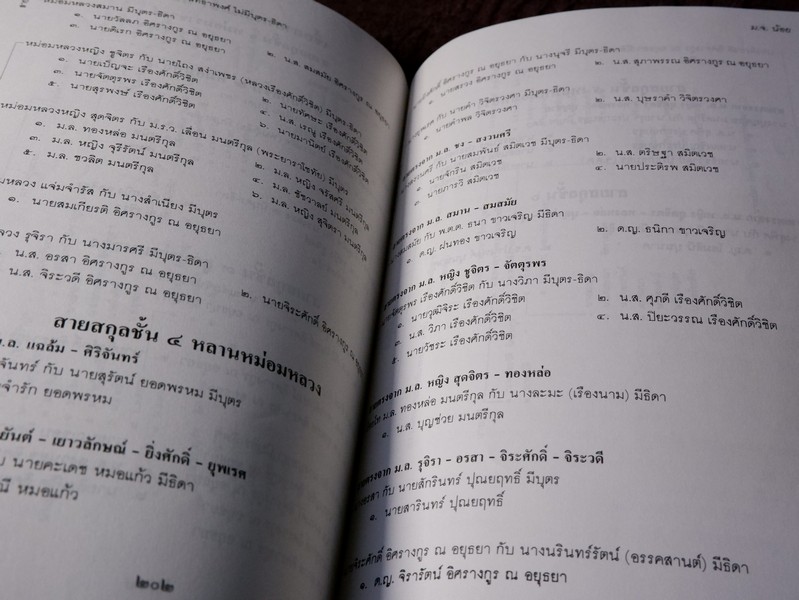 หม่อมหลวงสมาน มีบุตร-ธิดา
๑. นายวัลลภ อิศรางกูร ณ อยุธยา
๒. น.ส. สมสมัย อิศรางกูร ณ อยุธยา
๓. นายดิเรก อิศรางกูร ณ อยุธยา
หม่อมหลวงหญิง ชูจิตร กับ นายโถง สง่าเพชร (หลวงเรืองศักดิ์วิชิต) มีบุตร-ธิดา
๑. นายเบ็ญจะ เรืองศักดิ์วิชิต
๒. นายทัศนะ เรืองศักดิ์วิชิต
๓. นายจัตตุรพร เรืองศักดิ์วิชิต
๔. น.ส. เรณู เรืองศักดิ์วิชิต
๕. นายสุรพงษ์ เรืองศักดิ์วิชิต
๖. นายมานิตย์ เรืองศักดิ์วิชิต
หม่อมหลวงหญิง สุดจิตร กับ ม.ร.ว. เลื่อน มนตรีกุล (พระยาราโชทัย) มีบุตร
๑. ม.ล. ทองหล่อ มนตรีกุล
๒. ม.ล. หญิง จรัสศรี มนตรีกุล
๓. ม.ล. หญิง จุรีรัตน์ มนตรีกุล
๔. ม.ล. ชัชวาลย์ มนตรีกุล
๕. ม.ล. ชวลิต มนตรีกุล
๖. ม.ล. หญิง สุจิตรา มนตรีกุล
แจ่มจำรัส กับ นางสำเนียง มีบุตร
๑. นายสมเกียรติ อิศรางกูร ณ อยุธยา
รุจิรา กับ นางมารศรี มีบุตร-ธิดา
น.ส. อรสา อิศรางกูร ณ อยุธยา
๒. นายจิระศักดิ์ อิศรางกูร ณ อยุธยา
น.ส. จิระวดี อิศรางกูร ณ อยุธยา
สายสกุลชั้น ๔ หลานหม่อมหลวง
ม.ล. แฉล้ม - ศิริจันทร์
กับ นายสุรัตน์ ยอดพรหม มีบุตร
ยอดพรหม
- เยาวลักษณ์ - ยิ่งศักดิ์ - ยุพเรศ
นายคะเดช หมอแก้ว มีธิดา
หมอแก้ว
๒๐๒
ม.จ. น้อย
อิศรางกูร ณ อยุธยา กับ นางนุจรี มีบุตร-ธิดา
๑. นายสรวง อิศรางกูร ณ อยุธยา
๒. น.ส. สุภาพรรณ อิศรางกูร ณ อยุธยา
กับ นายดำ วิจิตรวงศา มีบุตร-ธิดา
๑. นายดำพล วิจิตรวงศา
๒. น.ส. บุษราคำ วิจิตรวงศา
ม.ล. ชง - สงวนศรี
กับ นายสมพันธ์ สมิตเวช มีบุตร-ธิดา
๑. นายจักริน สมิตเวช
๒. น.ส. ตริษฐา สมิตเวช
๓. นายภารวี สมิตเวช
๔. นายประดิรพ สมิตเวช
ม.ล. สมาน - สมสมัย
กับ พ.ต.ต. ธนา ขาวเจริญ มีธิดา
๑. ด.ญ. ฝนทอง ขาวเจริญ
๒. ด.ญ. ธนิกา ขาวเจริญ
ม.ล. หญิง ชูจิตร - จัตตุรพร
เรืองศักดิ์วิชิต กับ นางวิภา มีบุตร-ธิดา
๑. นายวุฒิจิระ เรืองศักดิ์วิชิต
๒. น.ส. ศุภดี เรืองศักดิ์วิชิต
๓. น.ส. วิภา เรืองศักดิ์วิชิต
๔. น.ส. ปิยะวรรณ เรืองศักดิ์วิชิต
๕. นายวัชระ เรืองศักดิ์วิชิต
ม.ล. หญิง สุดจิตร - ทองหล่อ
ม.ล. ทองหล่อ มนตรีกุล กับ นางละมะ (เรืองนาม) มีธิดา
๑. น.ส. บุญช่วย มนตรีกุล
ม.ล. รุจิรา - อรสา - จิระศักดิ์ - จิระวดี
กับ นายลักรินทร์ ปุณยฤทธิ์ มีบุตร
๑. นายสารินทร์ ปุณยฤทธิ์
อิศรางกูร ณ อยุธยา กับ นางนรินทร์รัตน์ (อรรคสานต์) มีธิดา
๑. ด.ญ. จิรารัตน์ อิศรางกูร ณ อยุธยา